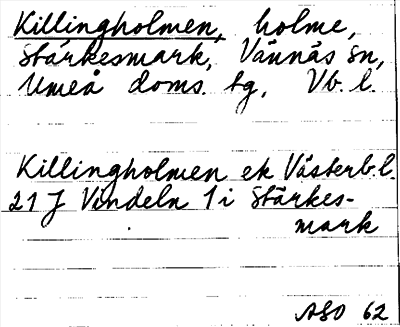 Killingholmen, holme,
Stärkesmark, Vännäs sn,
Umeå doms. tg, Vb. l.
Killingholmen ek Västerb. l.
21 J Vindeln 1 i Stärkes-
mark
ASO 62